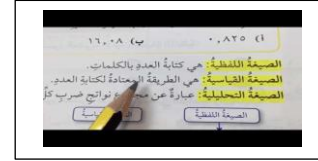 أ) ٠,٨٢٥ ب) ١٦,٠٨
الصيغة اللفظية: هي كتابةُ العددِ بالكلماتِ.
الصيغة القياسية: هي الطريقةُ المعتادةُ لكتابةِ العددِ.
الصيغة التحليلية: عبارةٌ عن نواتجِ ضربِ كلِّ
الصيغة اللفظية